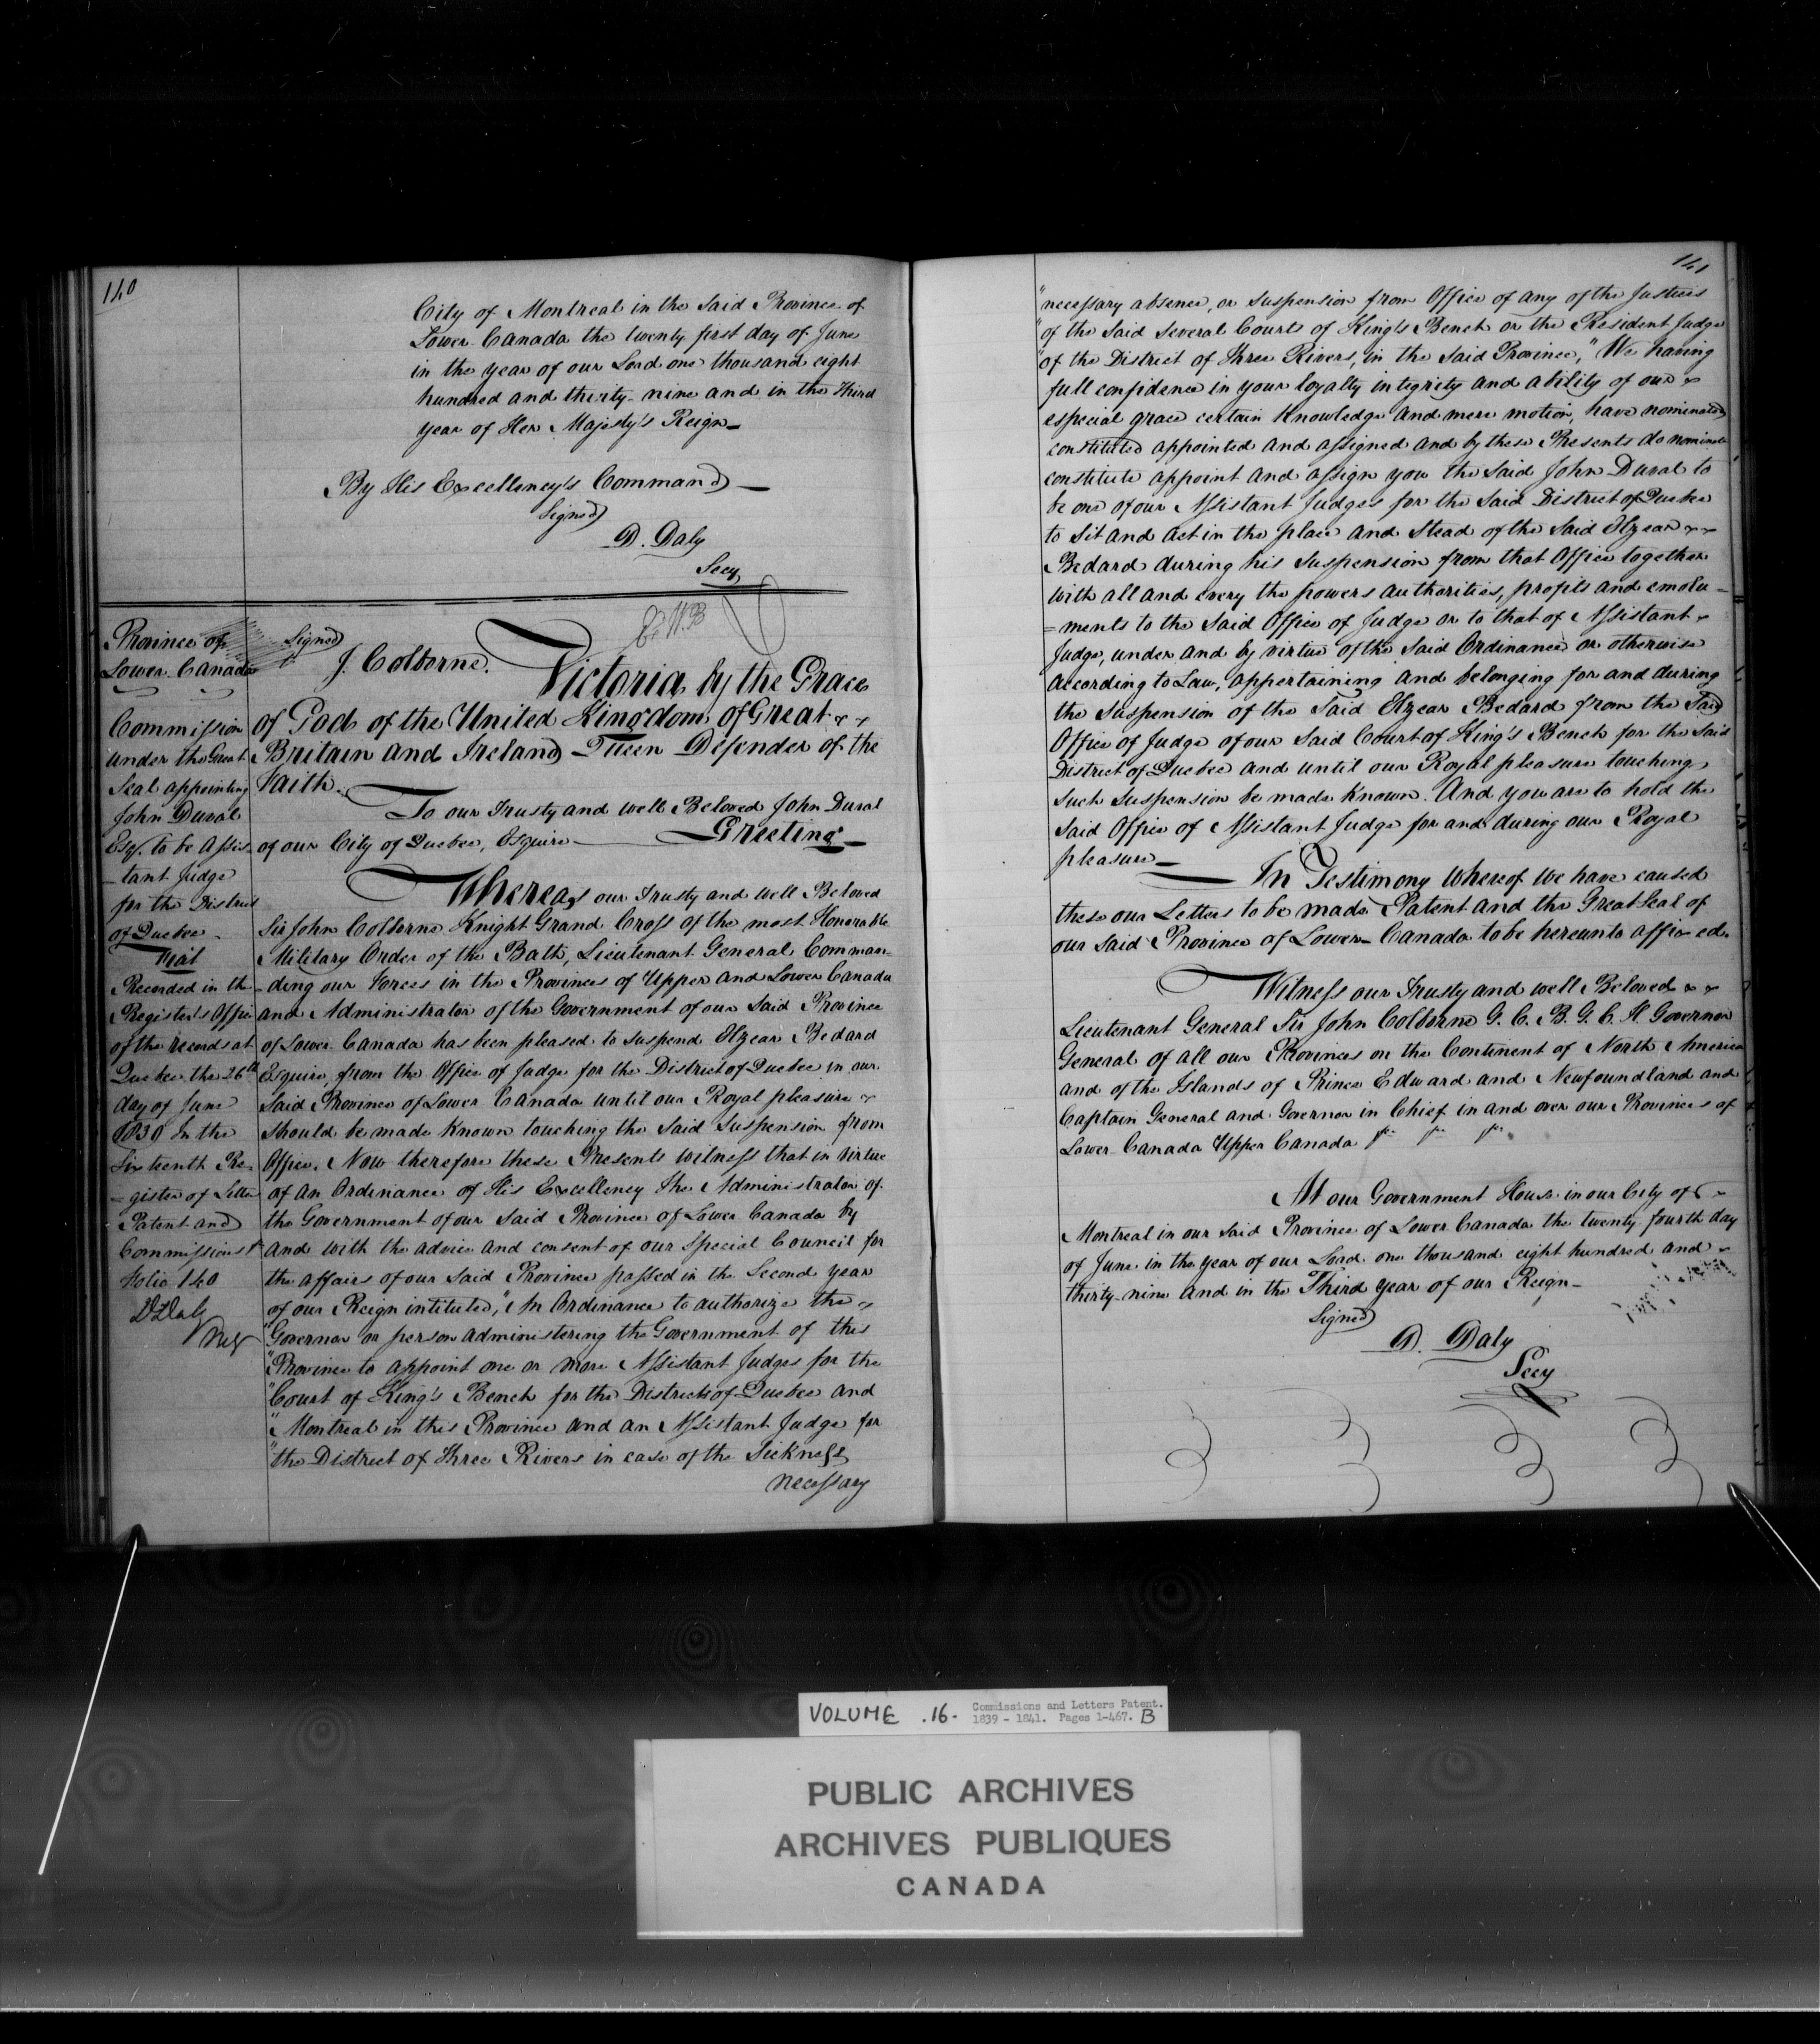 140
City of Montreal in the Said Province of
Lower Canada the twenty first day of June
in the year of our Lord one thousand eight
hundred and thirty-nine and in the Third
year of Her Majesty's Reign
By His Excellency's Command
Signed
D. Daly
Secy
Province of
Lower Canada
Commission
under the Great
Seal appointing
John Duval
Esqr. to be Assis-
-tant Judge
for the District
of Quebec
Fiat
Recorded in the
Register's Office
of the records at
Quebec the 26th
day of June
1839 In the
Sixteenth Re-
=gister of Letters
Patent and
Commissions
Folio 140
D Daly
Reg
Signed
J. Colborne.
Victoria by the Grace
of God of the United Kingdom of Great
Britain and Ireland Queen Defender of the
Faith.
To our Trusty and well Beloved John Duval
of our City of Quebec, Esquire Greeting
Whereas our Trusty and well Beloved
Sir John Colborne Knight Grand Cross of the most Honorable
Military Order of the Bath, Lieutenant General Comman-
-ding our Forces in the Provinces of Upper and Lower Canada
and Administrator of the Government of our Said Province
of Lower Canada has been pleased to suspend Elzear Bedard
Esquire, from the Office of Judge for the District of Quebec in our
Said Province of Lower Canada until our Royal pleasure
should be made known touching the Said Suspension from
Office. Now therefore these Presents witness that in virtue
of an Ordinance of His Excellency The Administrator of
the Government of our Said Province of Lower Canada by
and with the advice and consent of our Special Council for
the affairs of our Said Province passed in the Second year
of our Reign intituled, "An Ordinance to authorize the
"Governor or person administering the Government of this
"Province to appoint one or more Assistant Judges for the
"Court of King's Bench for the Districts of Quebec and
"Montreal in this Province and an Assistant Judge for
"the District of Three Rivers in case of the Sickness
necessary
141
"necessary absence, or suspension from Office of any of the Justices
"of the Said Several Courts of King's Bench or the Resident Judge
"of the District of Three Rivers, in the Said Province," We having
full confidence in your loyalty integrity and ability of our
especial grace certain knowledge and mere motion, have nominated
constituted appointed and assigned and by these Presents do nominate
constitute appoint and assign you the Said John Duval to
be one of our Assistant Judges for the Said District of Quebec
to Sit and act in the place and Stead of the Said Elzear
Bedard during his Suspension from that Office together
with all and every the powers authorities, profits and emolu-
=ments to the Said Office of Judge or to that of Assistant
Judge, under and by virtue of the Said Ordinance or otherwise
According to Law, appertaining and belonging for and during
the Suspension of the Said Elzear Bedard from the Said
Office of Judge of our Said Court of King's Bench for the Said
District of Quebec and until our Royal pleasure touching
such Suspension be made Known. And you are to hold the
Said Office of Assistant Judge for and during our Royal
pleasure
In Testimony whereof we have caused
these our Letters to be made Patent and the Great Seal of
our Said Province of Lower-Canada to be hereunto affixed.
Witness our Trusty and well Beloved
Lieutenant General Sir John Colborne G. C. B. G. C. H. Governor
General of all our Provinces on the Continent of North America
and of the Islands of Prince Edward and Newfoundland and
Captain General and Governor in Chief in and over our Provinces of
Lower Canada Upper Canada
At our Government House in our City of
Montreal in our Said Province of Lower Canada the twenty fourth day
of June in the year of our Lord one thousand eight hundred and
thirty-nine and in the Third year of our Reign
Signed
D. Daly
Secy
VOLUME .16. Commissions and Letters Patent.
1839 - 1841. Pages 1-467. B
PUBLIC ARCHIVES
ARCHIVES PUBLIQUES
CANADA